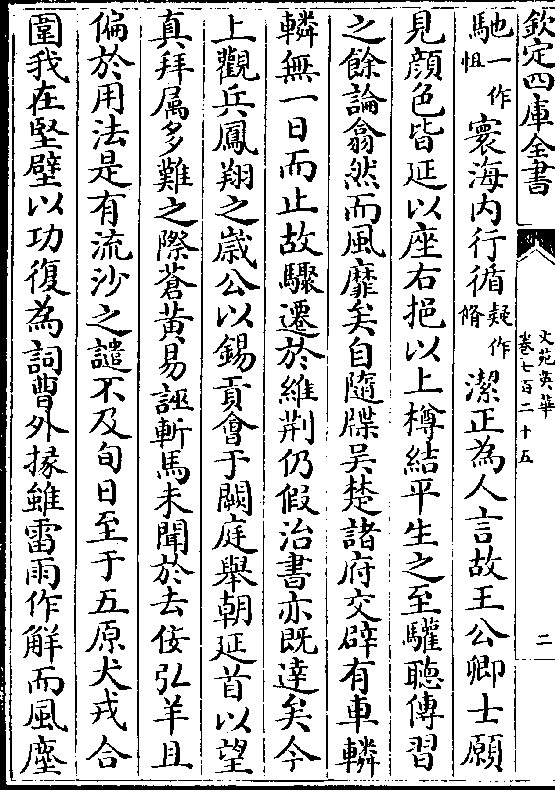 欽定四庫全書
文苑英華
卷七百二十五
二
馳一作怚寰海内行循疑作脩潔正為人言故王公卿士願
見顔色皆延以座右挹以上樽結平生之至驩聴傳習
之餘論翕然而風靡矣自隨牒吴楚諸府交辟有車轔
轔無一日而止故驟遷於維荆仍假治書亦既達矣今
上觀兵鳳翔之嵗公以錫貢會于闕庭舉朝延首以望
真拜属多難之際蒼黄易誣斬馬未聞於去佞弘羊且
偏於用法是有流沙之譴不及旬日至于五原犬戎合
圍我在堅壁以功復為詞曹外掾雖雷雨作解而風塵